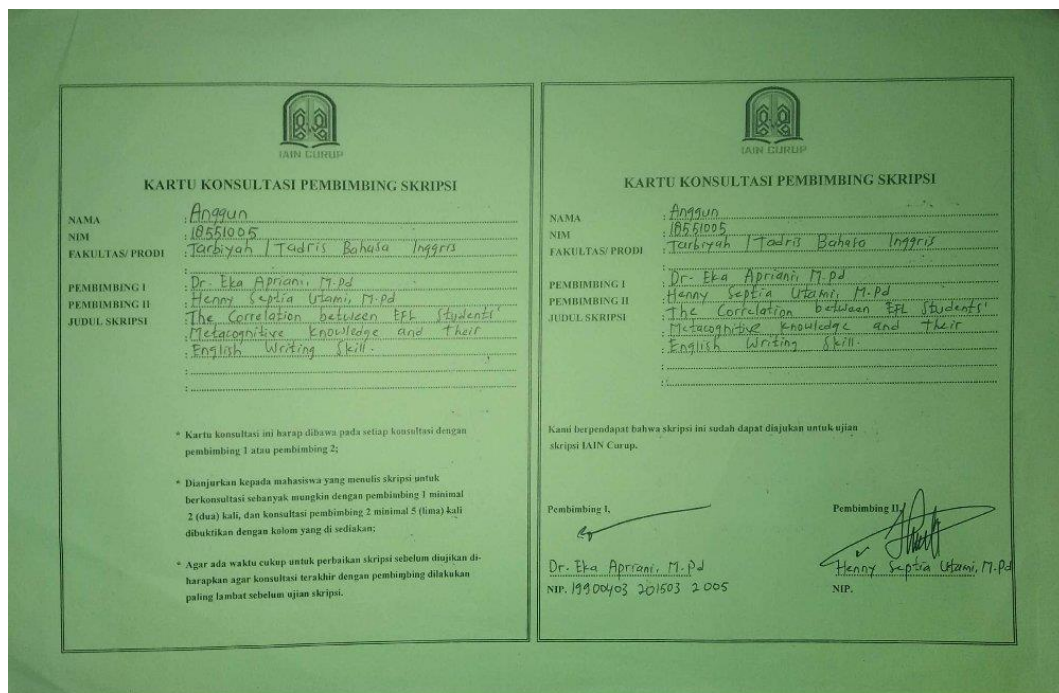 IAIN CURUP
KARTU KONSULTASI PEMBIMBING SKRIPSI
NAMA : Anggun
NIM : 18551005
FAKULTAS/ PRODI : Tarbiyah / Tadris Bahasa Inggris
:
PEMBIMBING I : Dr. Eka Apriani, M.Pd
PEMBIMBING II : Henny Septia Utami, M.Pd
JUDUL SKRIPSI : The Correlation between EFL Students'
: Metacognitive Knowledge and Their
: English Writing Skill.
:
:
* Kartu konsultasi ini harap dibawa pada setiap konsultasi dengan
pembimbing 1 atau pembimbing 2;
* Dianjurkan kepada mahasiswa yang menulis skripsi untuk
berkonsultasi sebanyak mungkin dengan pembimbing 1 minimal
2 (dua) kali, dan konsultasi pembimbing 2 minimal 5 (lima) kali
dibuktikan dengan kolom yang di sediakan;
* Agar ada waktu cukup untuk perbaikan skripsi sebelum diujikan di-
harapkan agar konsultasi terakhir dengan pembimbing dilakukan
paling lambat sebelum ujian skripsi.
IAIN CURUP
KARTU KONSULTASI PEMBIMBING SKRIPSI
NAMA : Anggun
NIM : 18551005
FAKULTAS/ PRODI : Tarbiyah / Tadris Bahasa Inggris
:
PEMBIMBING I : Dr. Eka Apriani, M.Pd
PEMBIMBING II : Henny Septia Utami, M.Pd
JUDUL SKRIPSI : The Correlation between EFL Students'
: Metacognitive Knowledge and their
: English Writing Skill.
:
:
Kami berpendapat bahwa skripsi ini sudah dapat diajukan untuk ujian
skripsi IAIN Curup.
Pembimbing I,
Pembimbing II,
Dr. Eka Apriani, M.Pd
Henny Septia Utami, M.Pd
NIP. 19900403 201503 2 005
NIP.